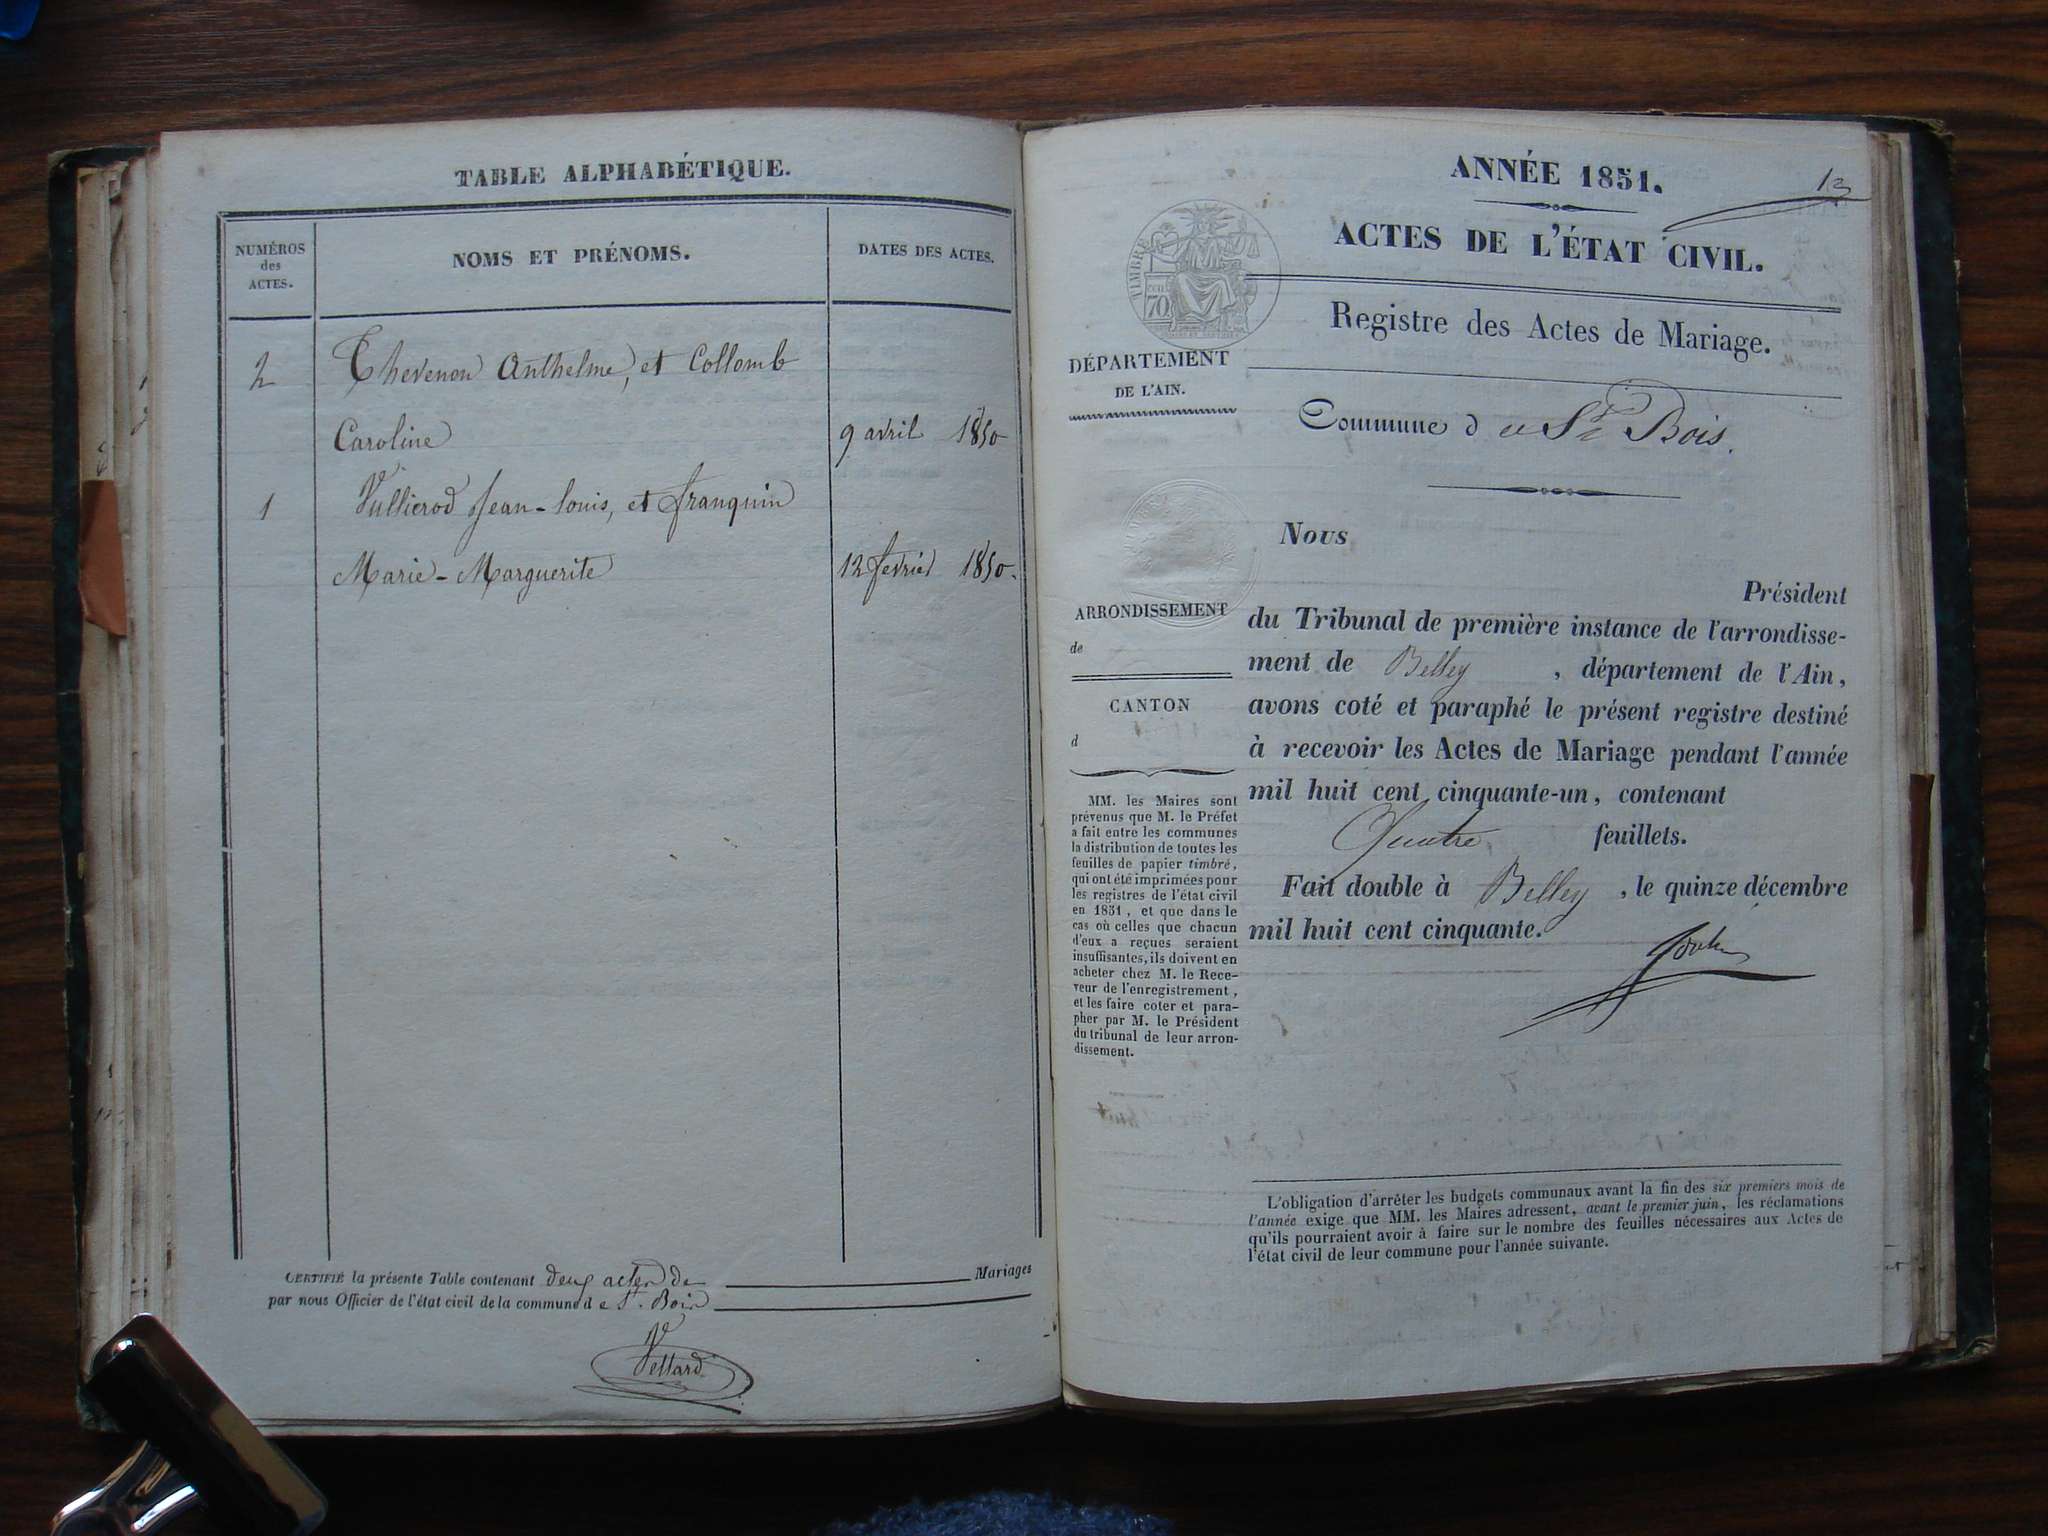 TABLE ALPHABÉTIQUE.
NUMÉROS
des
ACTES.
NOMS ET PRÉNOMS.
DATES DES ACTES.
2 Thevenon Anthelme, et Collomb
Caroline 9 avril 1850
1 Vullierod Jean-Louis, et franquin
Marie-Marguerite 12 fevrier 1850.
CERTIFIÉ la présente Table contenant deux actes de Mariages
par nous Officier de l'état civil de la commune de St. Bois
Vettard
ANNÉE 1851.
13
ACTES DE L'ÉTAT CIVIL.
TIMBRE
70
Registre des Actes de Mariage.
DÉPARTEMENT
DE L'AIN.
Commune de St Bois.
Nous
Président
ARRONDISSEMENT
de
CANTON
d
du Tribunal de première instance de l'arrondisse-
ment de Belley, département de l'Ain,
avons coté et paraphé le présent registre destiné
à recevoir les Actes de Mariage pendant l'année
mil huit cent cinquante-un, contenant
Quatre feuillets.
Fait double à Belley, le quinze décembre
mil huit cent cinquante.
MM. les Maires sont
prévenus que M. le Préfet
a fait entre les communes
la distribution de toutes les
feuilles de papier timbré,
qui ont été imprimées pour
les registres de l'état civil
en 1851, et que dans le
cas où celles que chacun
d'eux a reçues seraient
insuffisantes, ils doivent en
acheter chez M. le Rece-
veur de l'enregistrement,
et les faire coter et para-
pher par M. le Président
du tribunal de leur arron-
dissement.
L'obligation d'arrêter les budgets communaux avant la fin des six premiers mois de
l'année exige que MM. les Maires adressent, avant le premier juin, les réclamations
qu'ils pourraient avoir à faire sur le nombre des feuilles nécessaires aux Actes de
l'état civil de leur commune pour l'année suivante.